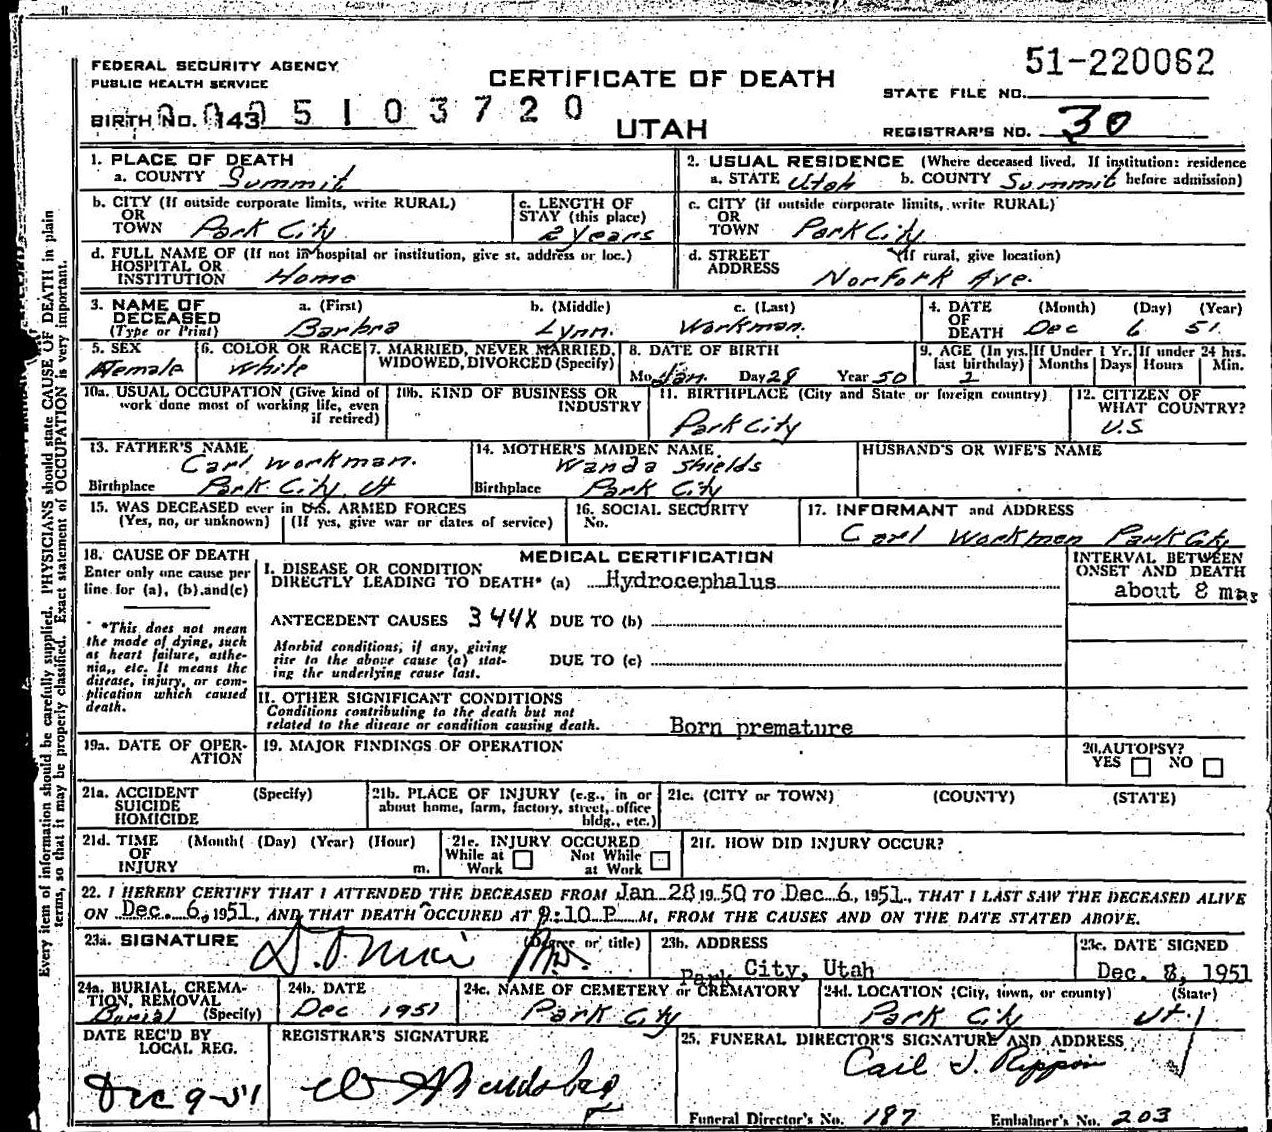 51-220062
FEDERAL SECURITY AGENCY
PUBLIC HEALTH SERVICE
CERTIFICATE OF DEATH
STATE FILE NO.
BIRTH NO. 143 5 1 0 3 7 2 0
UTAH
REGISTRAR'S NO. 30
1. PLACE OF DEATH
a. COUNTY Summit
2. USUAL RESIDENCE (Where deceased lived. If institution: residence before admission)
a. STATE Utah b. COUNTY Summit
b. CITY (If outside corporate limits, write RURAL) OR TOWN Park City
c. LENGTH OF STAY (this place) 2 years
c. CITY (if outside corporate limits, write RURAL) OR TOWN Park City
d. FULL NAME OF (If not in hospital or institution, give st. address or loc.) HOSPITAL OR INSTITUTION Home
d. STREET ADDRESS (If rural, give location) Norfork Ave.
3. NAME OF DECEASED (Type or Print)
a. (First) Barbra
b. (Middle) Lynn
c. (Last) Workman.
4. DATE OF DEATH (Month) (Day) (Year) Dec 6 51
5. SEX Female
6. COLOR OR RACE White
7. MARRIED, NEVER MARRIED, WIDOWED, DIVORCED (Specify)
8. DATE OF BIRTH Mo. Jan. Day 28 Year 50
9. AGE (In yrs. last birthday) 2
If Under 1 Yr. Months Days
If under 24 hrs. Hours Min.
10a. USUAL OCCUPATION (Give kind of work done most of working life, even if retired)
10b. KIND OF BUSINESS OR INDUSTRY
11. BIRTHPLACE (City and State or foreign country) Park City
12. CITIZEN OF WHAT COUNTRY? U.S
13. FATHER'S NAME Carl Workman.
Birthplace Park City, Ut
14. MOTHER'S MAIDEN NAME Wanda Shields
Birthplace Park City
HUSBAND'S OR WIFE'S NAME
15. WAS DECEASED ever in U.S. ARMED FORCES (Yes, no, or unknown) (If yes, give war or dates of service)
16. SOCIAL SECURITY No.
17. INFORMANT and ADDRESS Carl Workman Park City
18. CAUSE OF DEATH
Enter only one cause per line for (a), (b), and (c)
*This does not mean the mode of dying, such as heart failure, asthenia, etc. It means the disease, injury, or complication which caused death.
MEDICAL CERTIFICATION
I. DISEASE OR CONDITION DIRECTLY LEADING TO DEATH* (a) Hydrocephalus
INTERVAL BETWEEN ONSET AND DEATH
about 8 mns
ANTECEDENT CAUSES 344X DUE TO (b)
Morbid conditions, if any, giving rise to the above cause (a) stating the underlying cause last.
DUE TO (c)
II. OTHER SIGNIFICANT CONDITIONS
Conditions contributing to the death but not related to the disease or condition causing death. Born premature
19a. DATE OF OPERATION
19. MAJOR FINDINGS OF OPERATION
20. AUTOPSY? YES NO
21a. ACCIDENT SUICIDE HOMICIDE (Specify)
21b. PLACE OF INJURY (e.g., in or about home, farm, factory, street, office bldg., etc.)
21c. (CITY or TOWN) (COUNTY) (STATE)
21d. TIME OF INJURY (Month( (Day) (Year) (Hour) m.
21e. INJURY OCCURED While at Work Not While at Work
21f. HOW DID INJURY OCCUR?
22. I HEREBY CERTIFY THAT I ATTENDED THE DECEASED FROM Jan 28 1950 TO Dec. 6, 1951, THAT I LAST SAW THE DECEASED ALIVE
ON Dec. 6, 1951, AND THAT DEATH OCCURED AT 9:10 P M, FROM THE CAUSES AND ON THE DATE STATED ABOVE.
23a. SIGNATURE (Degree or title) M.D.
23b. ADDRESS Park City, Utah
23c. DATE SIGNED Dec. 8, 1951
24a. BURIAL, CREMATION, REMOVAL (Specify) Burial
24b. DATE Dec 1951
24c. NAME OF CEMETERY or CREMATORY Park City
24d. LOCATION (City, town, or county) (State) Park City Ut
DATE REC'D BY LOCAL REG. Dec 9-51
REGISTRAR'S SIGNATURE
25. FUNERAL DIRECTOR'S SIGNATURE AND ADDRESS
Funeral Director's No. 187 Embalmer's No. 203
Every item of information should be carefully supplied. PHYSICIANS should state CAUSE OF DEATH in plain
terms, so that it may be properly classified. Exact statement of OCCUPATION is very important.